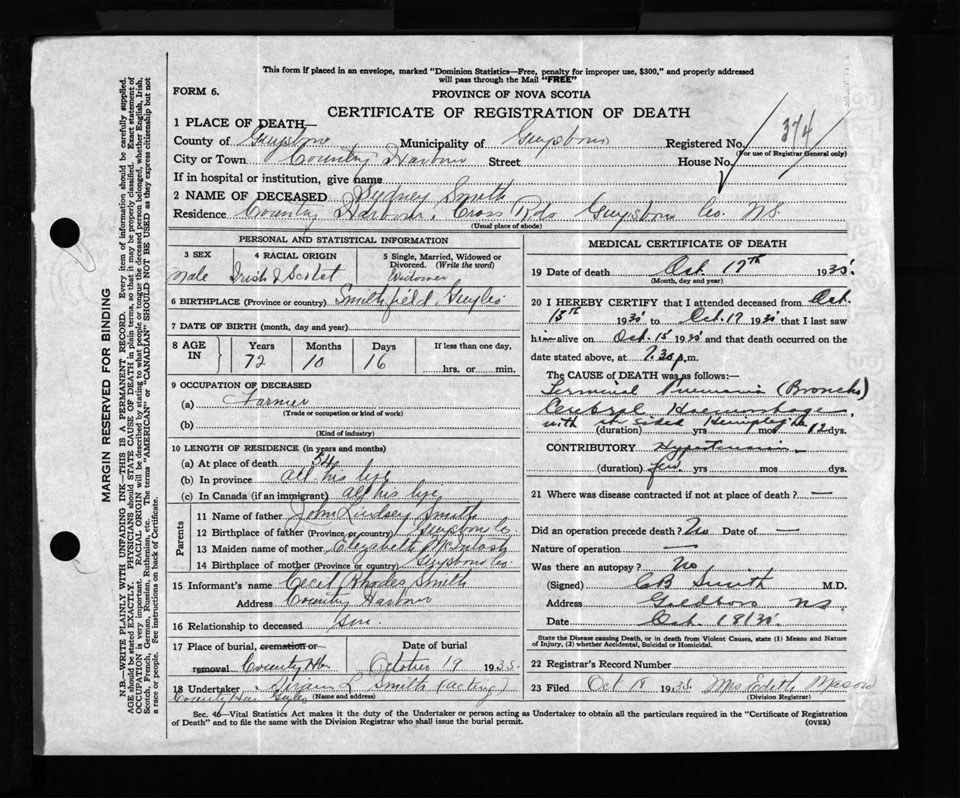 This form if placed in an envelope, marked "Dominion Statistics—Free, penalty for improper use, $300," and properly addressed
will pass through the Mail "FREE"
FORM 6.
PROVINCE OF NOVA SCOTIA
CERTIFICATE OF REGISTRATION OF DEATH
374
1 PLACE OF DEATH—
County of Guysboro Municipality of Guysboro Registered No.
(For use of Registrar General only)
City or Town Country Harbour Street House No.
If in hospital or institution, give name
2 NAME OF DECEASED Sydney Smith
Residence Country Harbour, Cross Rds Guysboro Co. N.S.
(Usual place of abode)
PERSONAL AND STATISTICAL INFORMATION
3 SEX 4 RACIAL ORIGIN 5 Single, Married, Widowed or Divorced. (Write the word)
Male Irish & Scotch Widower
6 BIRTHPLACE (Province or country) Smithfield, Guy Co
7 DATE OF BIRTH (month, day and year)
8 AGE IN Years Months Days If less than one day,
72 10 16 hrs. or min.
9 OCCUPATION OF DECEASED
(a) Farmer
(Trade or occupation or kind of work)
(b)
(Kind of industry)
10 LENGTH OF RESIDENCE (in years and months)
(a) At place of death 54
(b) In province all his life
(c) In Canada (if an immigrant) all his life
Parents
11 Name of father John Lindsey Smith
12 Birthplace of father (Province or country) Guysboro Co.
13 Maiden name of mother Elizabeth McIntosh
14 Birthplace of mother (Province or country) Guysboro Co
15 Informant's name Cecil Rhodes Smith
Address Country Harbour
16 Relationship to deceased Son.
17 Place of burial, cremation or removal Country Hbr
Date of burial October 19 1935.
18 Undertaker Hiram L Smith (acting)
(Name and address)
Country Har Guy Co
MEDICAL CERTIFICATE OF DEATH
19 Date of death Oct. 17th 1935
(Month, day and year)
20 I HEREBY CERTIFY that I attended deceased from Oct.
15th 1935 to Oct. 17 1935 that I last saw
him alive on Oct. 15 1935 and that death occurred on the
date stated above, at 7.30 p.m.
The CAUSE of DEATH was as follows:—
Terminal Pneumonia (Broncho)
Cerebral Haemorrhage,
with sided Hemiplegia
(duration) yrs mos 12 dys.
CONTRIBUTORY Hypertension
(duration) few yrs mos. dys.
21 Where was disease contracted if not at place of death? —
Did an operation precede death? No Date of —
Nature of operation —
Was there an autopsy? No
(Signed) CB Smith M.D.
Address Goldboro N.S.
Date Oct. 18/35
State the Disease causing Death, or in death from Violent Causes, state (1) Means and Nature
of Injury, (2) whether Accidental, Suicidal or Homicidal.
22 Registrar's Record Number
23 Filed Oct 18 1935 Mrs Edith Mason
(Division Registrar)
Sec. 46—Vital Statistics Act makes it the duty of the Undertaker or person acting as Undertaker to obtain all the particulars required in the "Certificate of Registration
of Death" and to file the same with the Division Registrar who shall issue the burial permit.
(OVER)
MARGIN RESERVED FOR BINDING
N.B.—WRITE PLAINLY WITH UNFADING INK—THIS IS A PERMANENT RECORD. Every item of information should be carefully supplied.
AGE should be stated EXACTLY. PHYSICIANS should STATE CAUSE OF DEATH in plain terms, so that it may be properly classified. Exact statement of
OCCUPATION is very important. RACIAL ORIGIN will be described by stating to what people or tongue the deceased person belonged, whether English, Irish,
Scotch, French, German, Russian, Ruthenian, etc. The terms "AMERICAN" or "CANADIAN" SHOULD NOT BE USED as they express citizenship but not
a race or people. See instructions on back of Certificate.